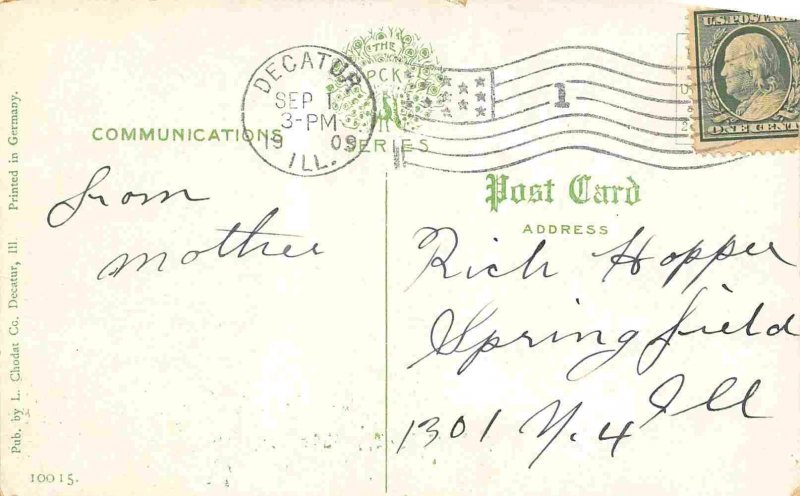 U.S. POSTAGE
ONE CENT
DECATUR
SEP 1
3-PM
1909
ILL.
THE
PCK
SERIES
1
COMMUNICATIONS
Post Card
ADDRESS
from
mother
Rich Hopper
Springfield
Ill
1301 N. 4
Pub. by L. Chodat Co. Decatur, Ill. Printed in Germany.
10015.